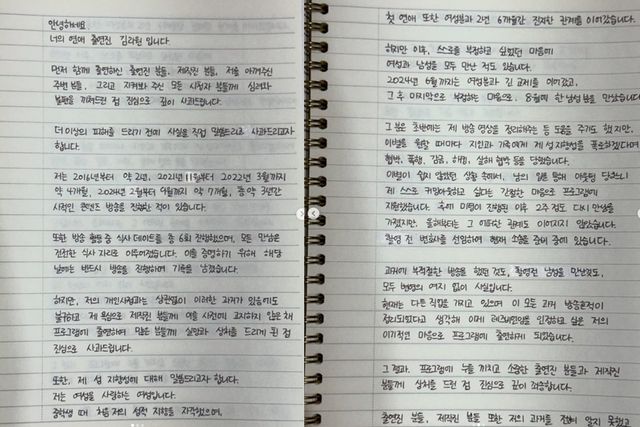 안녕하세요
너의 연애 출연진, 김리원 입니다.
먼저 함께 출연하신 출연진 분들, 제작진 분들, 저를 아껴주신
주변 분들, 그리고 지켜봐 주신 모든 시청자 분들께 심려와
불편을 끼쳐드린 점 진심으로 깊이 사과드립니다.
더 이상의 피해를 드리기 전에 사실을 직접 말씀드리고 사과드리고자
합니다.
저는 2016년부터 약 2년, 2021년 11월부터 2022년 3월까지
약 4개월, 2024년 2월부터 9월까지 약 7개월, 총 약 3년간
사적인 콘텐츠 방송을 진행한 적이 있습니다.
또한 방송 활동 중 식사 데이트를 총 6회 진행했으며, 모든 만남은
건전한 식사 자리로 이루어졌습니다. 이를 증명하기 위해 해당
날에는 반드시 방송을 진행하며 기록을 남겼습니다.
하지만, 저의 개인사정과는 상관없이 이러한 과거가 있음에도
불구하고 제 욕심으로 제작진 분들께 이를 사전에 고지하지 않은 채
프로그램에 출연하여 많은 분들께 실망과 상처를 드리게 된 점
진심으로 사과드립니다.
또한, 제 성 지향성에 대해 말씀드리고자 합니다.
저는 여성을 사랑하는 여성입니다.
중학생 때 처음 저의 성적 지향을 자각했으며,
첫 연애 또한 여성분과 2년 6개월간 진지한 관계를 이어갔습니다.
하지만 이후, 스스로를 부정하고 싶었던 마음에
여성과 남성을 모두 만난 적도 있습니다.
2024년 6월까지는 여성분과 긴 교제를 이어갔고,
그 후 마지막으로 부정하는 마음으로, 8월에 한 남성분을 만났습니다
그 분은 초반에는 제 방송 영상을 정리해주는 등 도움을 주기도 했지만,
이별을 원할 때마다 지인과 가족에게 제 성지향성을 폭로하겠다며
협박, 폭행, 감금, 해킹, 살해 협박 등을 당했습니다.
이별이 쉽지 않았던 상황 속에서, 남의 입을 통해 아웃팅 당하느니
제 스스로 커밍아웃하고 싶다는 간절한 마음으로 프로그램에
지원했습니다. 촬영 전 변호사를 선임하여 현재 소송을 준비 중에 있습니다.
과거에 부적절한 방송을 했던 것도, 촬영전 남성을 만난것도,
모두 변명의 여지 없이 사실입니다.
현재는 다른 직업을 가지고 있으며 이 모든 과거 방송흔적이
정리되었다고 생각해 이제 레즈비언임을 인정하고 싶은 저의
이기적인 마음으로 프로그램에 출연하게 되었습니다.
그 결과, 프로그램에 누를 끼치고 소중한 출연진 분들과 제작진
분들께 상처를 드린 점 진심으로 깊이 죄송합니다.
출연진 분들, 제작진 분들 또한 저의 과거를 전혀 알지 못했고